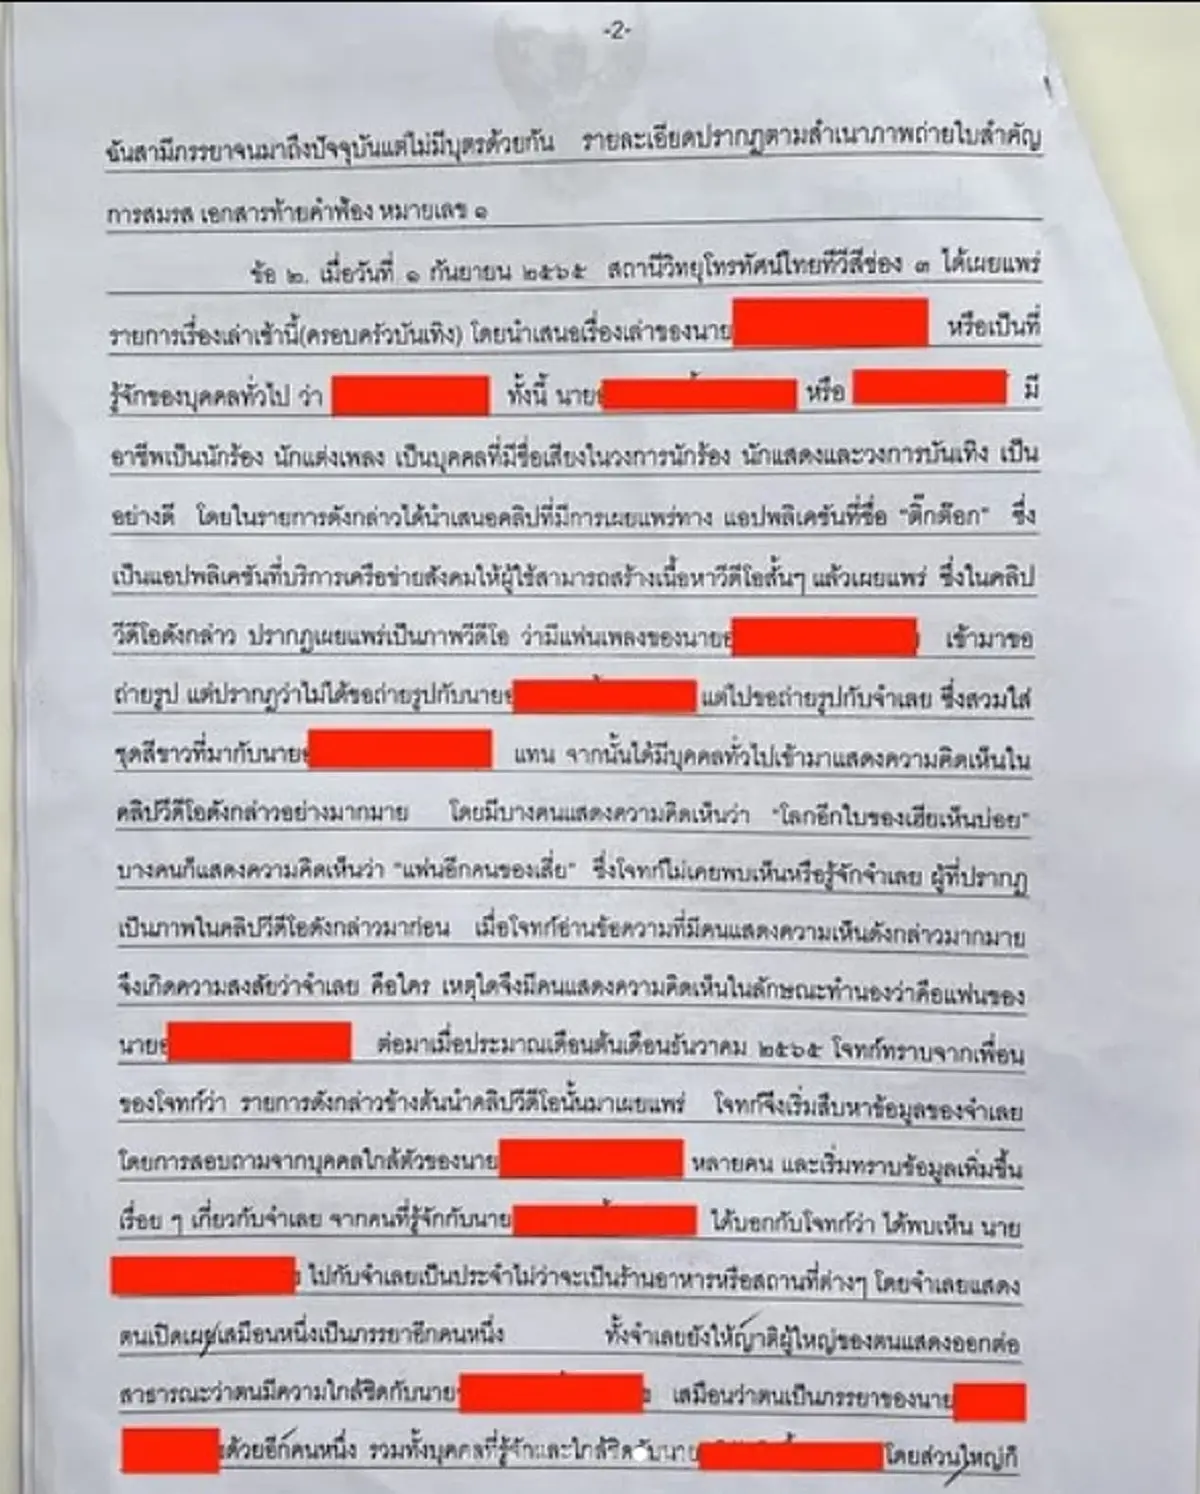 -2-
ฉันสามีภรรยาจนมาถึงปัจจุบันแต่ไม่มีบุตรด้วยกัน รายละเอียดปรากฏตามสำเนาภาพถ่ายใบสำคัญ
การสมรส เอกสารท้ายคำฟ้อง หมายเลข ๑
ข้อ ๒. เมื่อวันที่ ๑ กันยายน ๒๕๖๕ สถานีวิทยุโทรทัศน์ไทยทีวีสีช่อง ๓ ได้เผยแพร่
รายการเรื่องเล่าเช้านี้(ครอบครัวบันเทิง) โดยนำเสนอเรื่องเล่าของนาย หรือเป็นที่
รู้จักของบุคคลทั่วไป ว่า ทั้งนี้ นาย หรือ มี
อาชีพเป็นนักร้อง นักแต่งเพลง เป็นบุคคลที่มีชื่อเสียงในวงการนักร้อง นักแสดงและวงการบันเทิง เป็น
อย่างดี โดยในรายการดังกล่าวได้นำเสนอคลิปที่มีการเผยแพร่ทาง แอปพลิเคชันที่ชื่อ "ติ๊กต๊อก" ซึ่ง
เป็นแอปพลิเคชันที่บริการเครือข่ายสังคมให้ผู้ใช้สามารถสร้างเนื้อหาวีดีโอสั้นๆ แล้วเผยแพร่ ซึ่งในคลิป
วีดีโอดังกล่าว ปรากฏเผยแพร่เป็นภาพวีดีโอ ว่ามีแฟนเพลงของนาย เข้ามาขอ
ถ่ายรูป แต่ปรากฏว่าไม่ได้ขอถ่ายรูปกับนาย แต่ไปขอถ่ายรูปกับจำเลย ซึ่งสวมใส่
ชุดสีขาวที่มากับนาย แทน จากนั้นได้มีบุคคลทั่วไปเข้ามาแสดงความคิดเห็นใน
คลิปวีดีโอดังกล่าวอย่างมากมาย โดยมีบางคนแสดงความคิดเห็นว่า "โลกอีกใบของเฮียเห็นบ่อย"
บางคนก็แสดงความคิดเห็นว่า "แฟนอีกคนของเสี่ย" ซึ่งโจทก์ไม่เคยพบเห็นหรือรู้จักจำเลย ผู้ที่ปรากฏ
เป็นภาพในคลิปวีดีโอดังกล่าวมาก่อน เมื่อโจทก์อ่านข้อความที่มีคนแสดงความเห็นดังกล่าวมากมาย
จึงเกิดความสงสัยว่าจำเลย คือใคร เหตุใดจึงมีคนแสดงความคิดเห็นในลักษณะทำนองว่าคือแฟนของ
นาย ต่อมาเมื่อประมาณเดือนต้นเดือนธันวาคม ๒๕๖๕ โจทก์ทราบจากเพื่อน
ของโจทก์ว่า รายการดังกล่าวข้างต้นนำคลิปวีดีโอนั้นมาเผยแพร่ โจทก์จึงเริ่มสืบหาข้อมูลของจำเลย
โดยการสอบถามจากบุคคลใกล้ตัวของนาย หลายคน และเริ่มทราบข้อมูลเพิ่มขึ้น
เรื่อย ๆ เกี่ยวกับจำเลย จากคนที่รู้จักกับนาย ได้บอกกับโจทก์ว่า ได้พบเห็น นาย
ไปกับจำเลยเป็นประจำไม่ว่าจะเป็นร้านอาหารหรือสถานที่ต่างๆ โดยจำเลยแสดง
ตนเปิดเผยเสมือนหนึ่งเป็นภรรยาอีกคนหนึ่ง ทั้งจำเลยยังให้ญาติผู้ใหญ่ของตนแสดงออกต่อ
สาธารณะว่าตนมีความใกล้ชิดกับนาย เสมือนว่าตนเป็นภรรยาของนาย
ด้วยอีกคนหนึ่ง รวมทั้งบุคคลที่รู้จักและใกล้ชิดกับนาย โดยส่วนใหญ่ก็